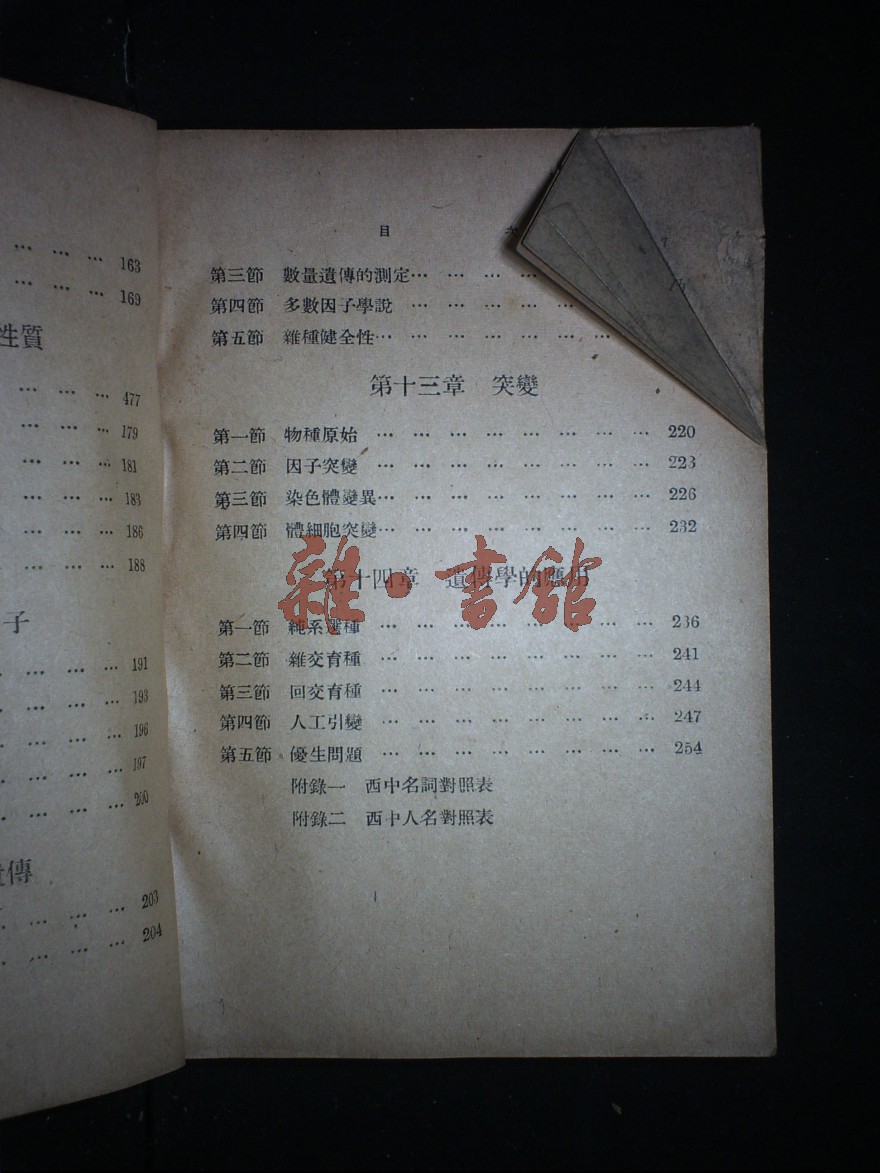 … … … 163
… … … 169
性質
… … … 477
… … … 179
… … … 181
… … … 183
… … … 186
… … … 188
子
… … … 191
… … … 193
… … … 196
… … … 197
… … … 200
傳
… … … 203
… … … 204
目
第三節 數量遺傳的測定… … … …
第四節 多數因子學說 … … … … …
第五節 雜種健全性… … … … … … …
第十三章 突變
第一節 物種原始 … … … … … … … … 220
第二節 因子突變 … … … … … … … … 223
第三節 染色體變異… … … … … … … … 226
第四節 體細胞突變… … … … … … … … 232
第十四章 遺傳學的應用
雜·書館
第一節 純系選種 … … … … … … … … 236
第二節 雜交育種 … … … … … … … … 241
第三節 回交育種 … … … … … … … … 244
第四節 人工引變 … … … … … … … … 247
第五節 優生問題 … … … … … … … … 254
附錄一 西中名詞對照表
附錄二 西中人名對照表